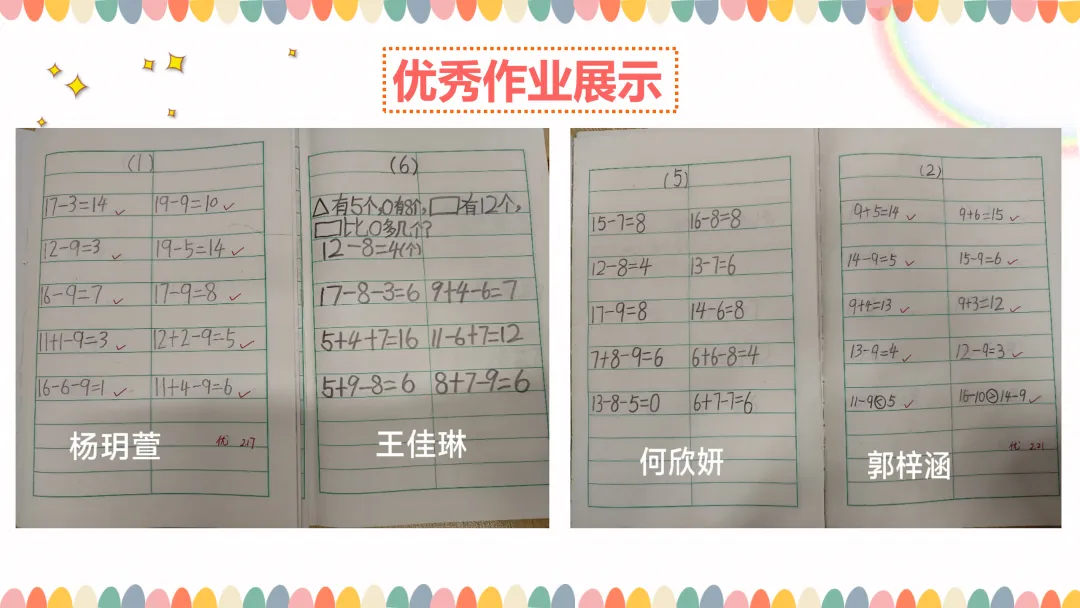 优秀作业展示
(1)
17-3=14 19-9=10
12-9=3 19-5=14
16-9=7 17-9=8
11+1-9=3 12+2-9=5
16-6-9=1 11+4-9=6
优 2.17
杨玥萱
(6)
△有5个,○有8个,□有12个,
□比○多几个?
12-8=4(个)
17-8-3=6 9+4-6=7
5+4+7=16 11-6+7=12
5+9-8=6 8+7-9=6
王佳琳
(5)
15-7=8 16-8=8
12-8=4 13-7=6
17-9=8 14-6=8
7+8-9=6 6+6-8=4
13-8-5=0 6+7-7=6
何欣妍
(2)
9+5=14 9+6=15
14-9=5 15-9=6
9+4=13 9+3=12
13-9=4 12-9=3
11-9<5 16-10>14-9
优
郭梓涵